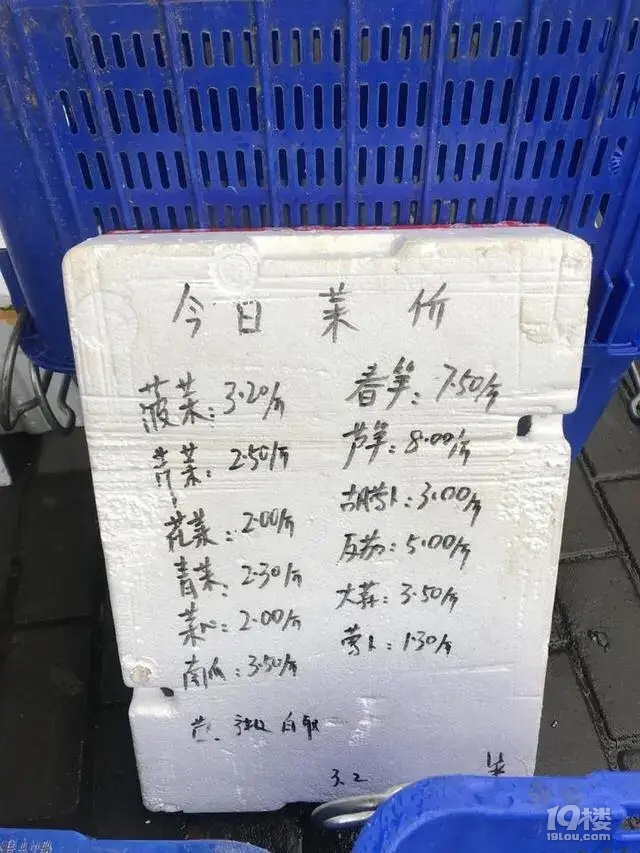 今日菜价
菠菜：3.20/斤
春笋：7.50/斤
芹菜：2.50/斤
芦笋：8.00/斤
花菜：2.00/斤
胡萝卜：3.00/斤
青菜：2.30/斤
5.00/斤
菜心：2.00/斤
大蒜：3.50/斤
南瓜：3.50/斤
萝卜：1.30/斤
自取
3.2
19楼
19lou.com